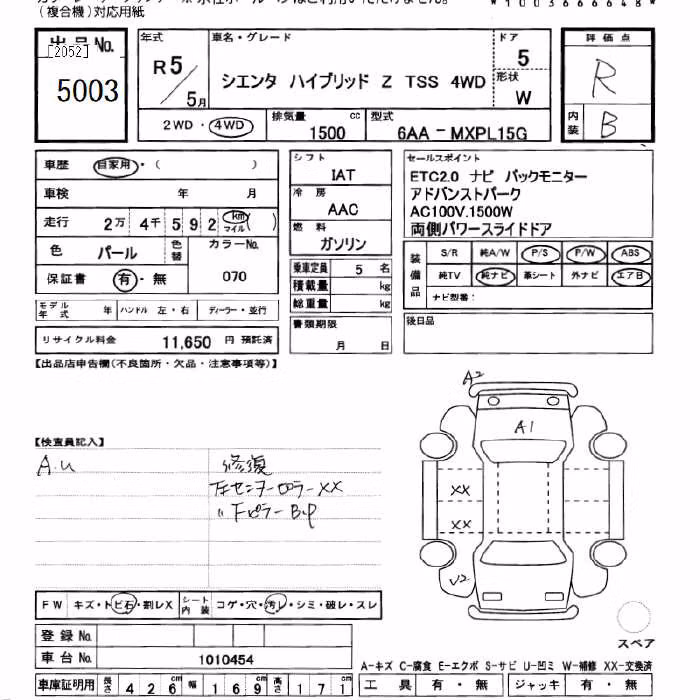 (複合機)対応用紙
*1003666648*
出品No.
[2052]
5003
年式
R5/5月
車名・グレード
シエンタ ハイブリッド Z TSS 4WD
ドア
5
形状
W
評価点
R
内装
B
2WD・4WD
排気量
1500
cc
型式
6AA-MXPL15G
車歴 自家用・( )
車検 年 月
走行 2万 4千 5 9 2 km マイル ( )
色 パール
色替
カラーNo.
070
保証書 有・無
モデル年式 年
ハンドル 左・右
ディーラー・並行
リサイクル料金 11,650 円 預託済
シフト
IAT
冷房
AAC
燃料
ガソリン
乗車定員 5 名
積載量 kg
総重量 kg
書類期限
月 日
セールスポイント
ETC2.0 ナビ バックモニター
アドバンストパーク
AC100V.1500W
両側パワースライドドア
装備品
S/R 純A/W P/S P/W ABS
純TV 純ナビ 革シート 外ナビ エアB
ナビ型番:
後日品
【出品店申告欄(不良箇所・欠品・注意事項等)】
【検査員記入】
A.u
修復
左センターピラーXX
〃Fピラー B.P
A2
A1
XX
XX
U2
FW キズ・トビ石・割レX
シート内装 コゲ・穴・汚レ・シミ・破レ・スレ
登録No.
車台No. 1010454
車庫証明用 長さ 426 cm 幅 169 cm 高さ 171 cm
スペア
A-キズ C-腐食 E-エクボ S-サビ U-凹ミ W-補修 XX-交換済
工具 有・無 ジャッキ 有・無